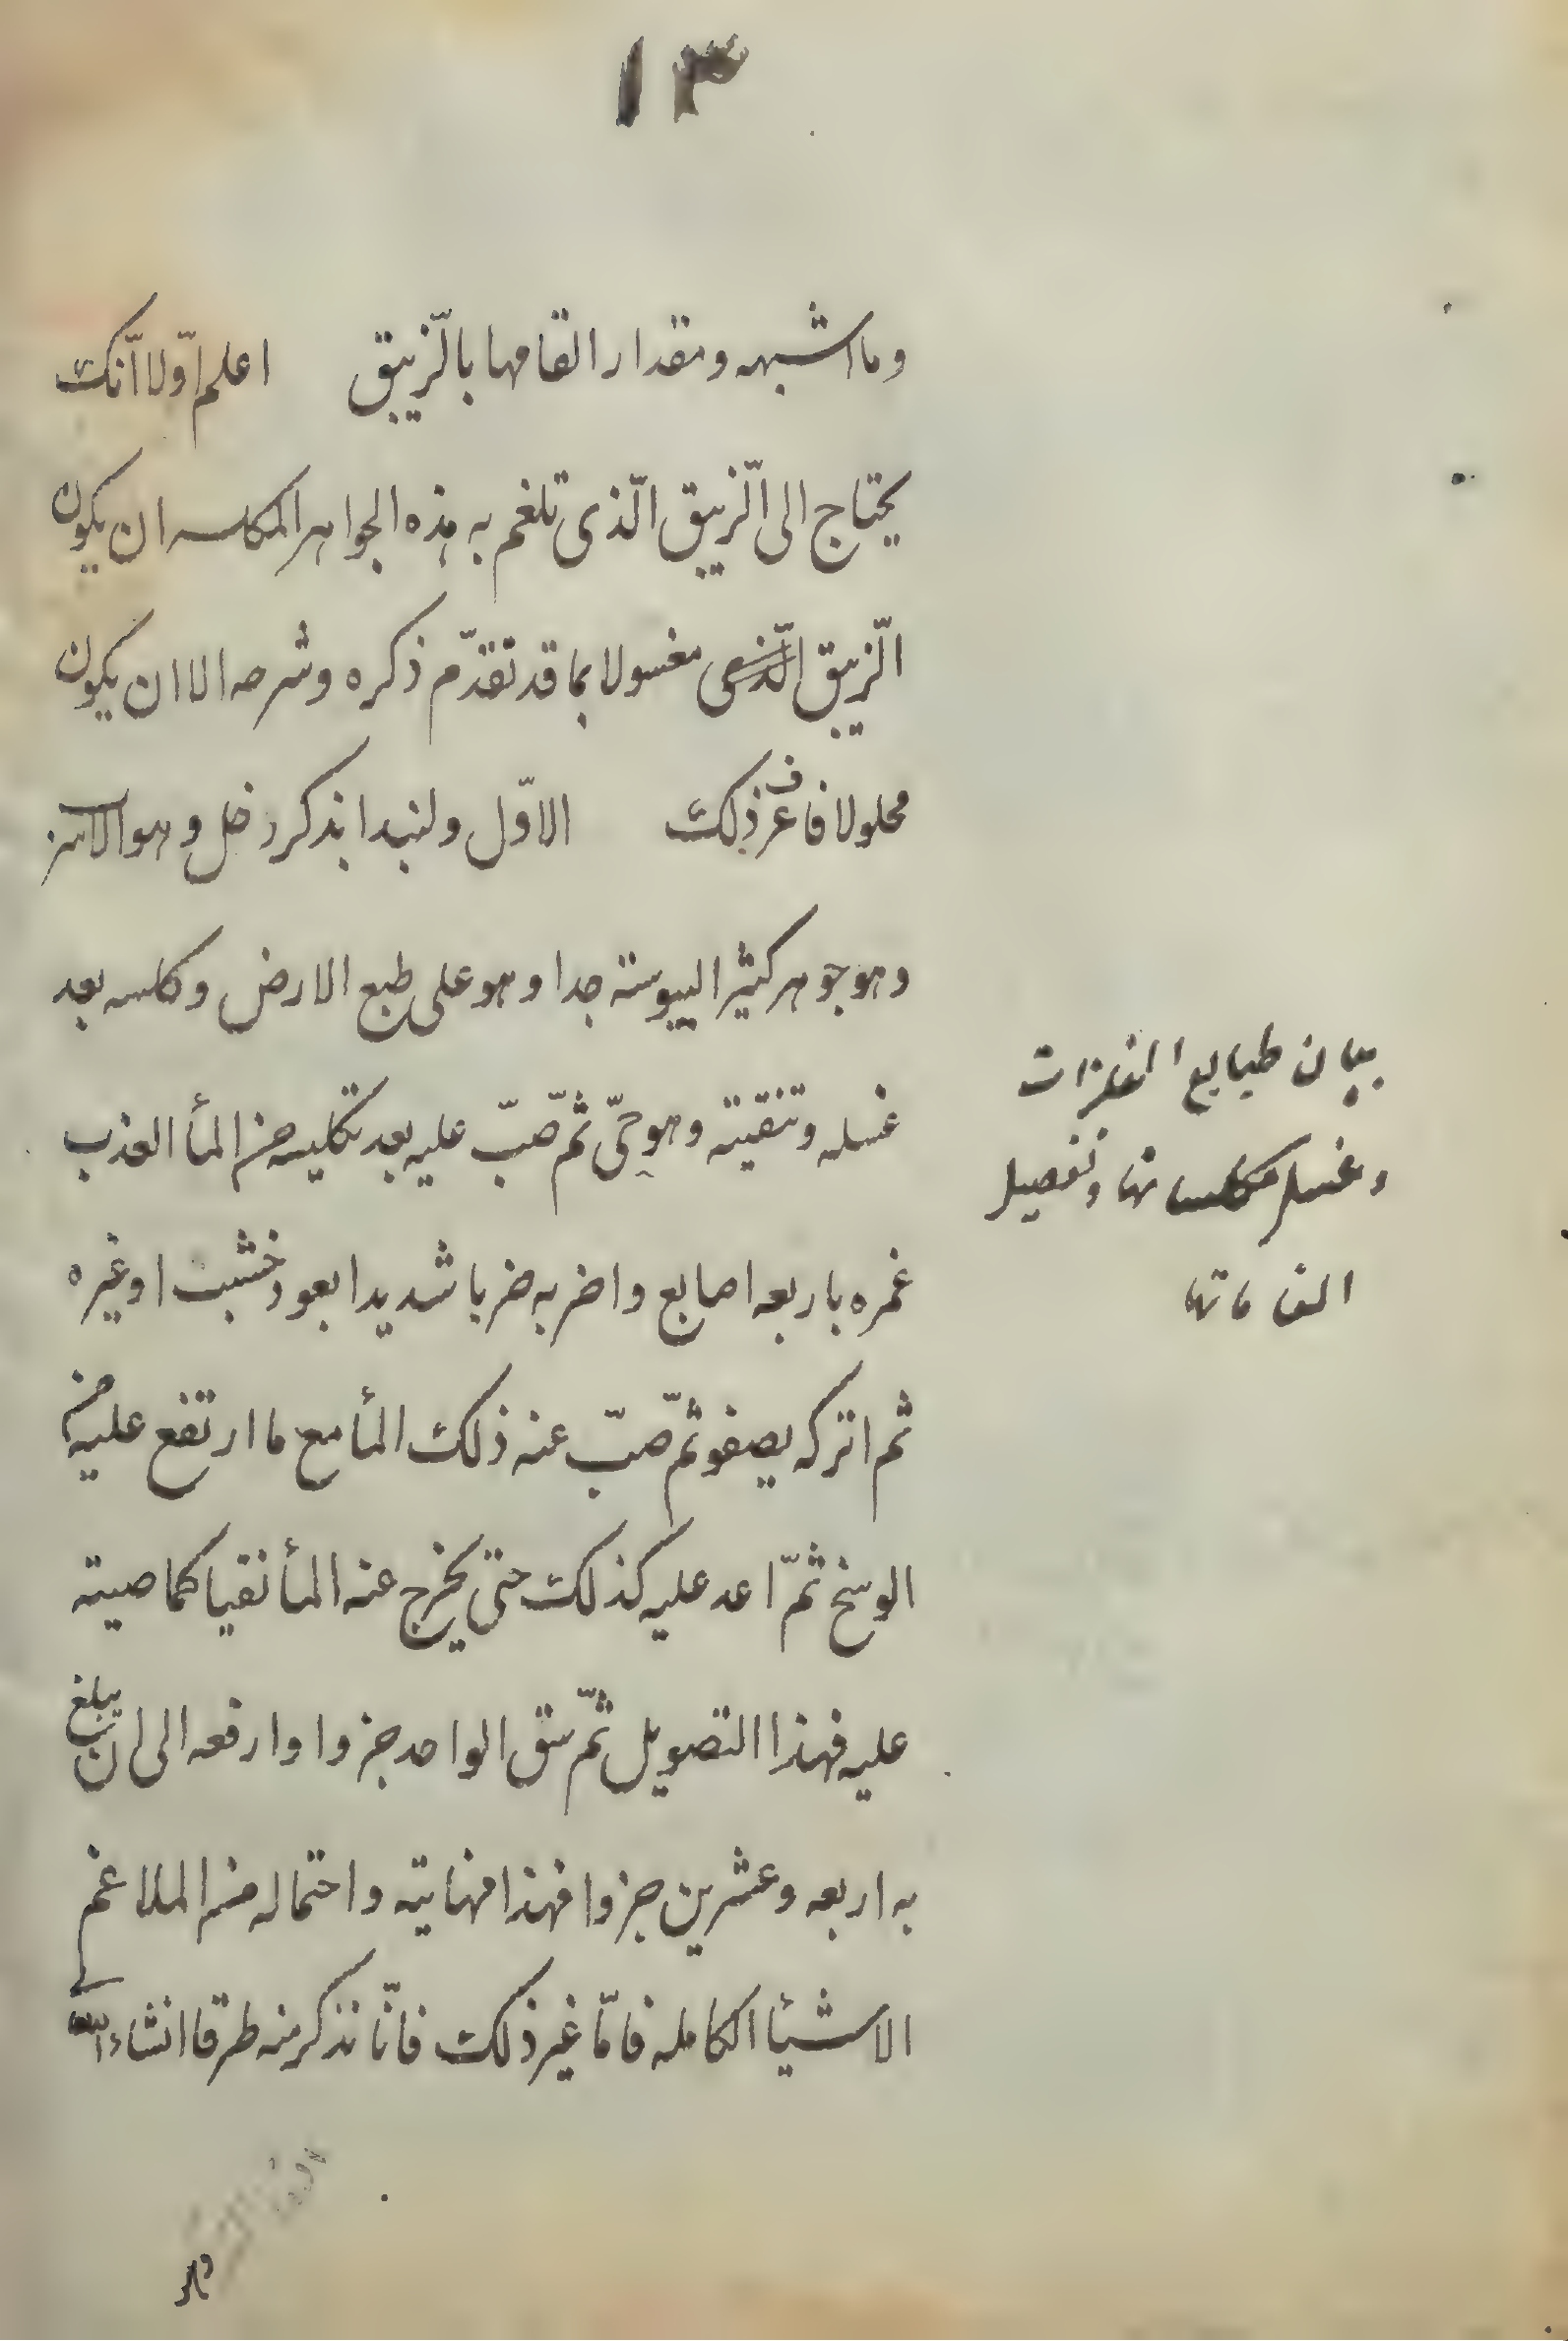 ١٣
وما اشبهه ومقدار القامها بالّزيبق اعلم اوّلا انّك
يحتاج الى الّزيبق الّذى تلغم به هذه الجواهر المكلسه ان يكون
الّزيبق الّذى مغسولا بما قد تقدّم ذكره وشرحه الا ان يكون
محلولا فاعرف ذلك الاوّل ولنبدا بذكر زحل وهو الاسرب
وهو جوهر كثير اليبوسة جدا وهو على طبع الارض وكلسه بعد
غسله وتنقيته وهو حىّ ثمّ صبّ عليه بعد تكليسه من المأ العذب
غمره باربعه اصابع واضربه ضربا شديدا بعود خشب او غيره
ثم اتركه يصفو ثمّ صبّ عنه ذلك المأ مع ما ارتفع عليه من
الوسخ ثمّ اعد عليه كذلك حتى يخرج عنه المأ نقيا كما صببته
عليه فهذا التصويل ثمّ سق الواحد جزوا وارفعه الى ان يبلغ
به اربعه وعشرين جزوا فهذا نهايته واحتماله من الملاغم
الاشيأ الكامله فامّا غير ذلك فانّا نذكر منه طرقا انشاء الله
بيان طبايع الفلزات
وغسل مكلساتها وتفصيل
الغاماتها